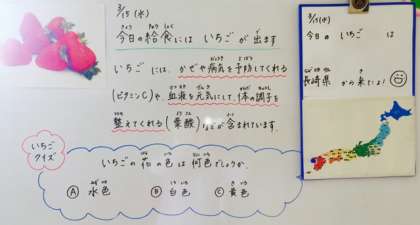 3/15 (水)
今日の給食には いちごが 出ます
いちごには、かぜや病気を予防してくれる
(ビタミンC)や、血液を元気にして、体の調子を
整えてくれる(葉酸)などが含まれています。
いちご
クイズ
いちごの花の色は何色でしょうか。
Ⓐ 水色 Ⓑ 白色 Ⓒ 黄色
3/15(水)
今日の いちご は
長崎県 から来たよ!